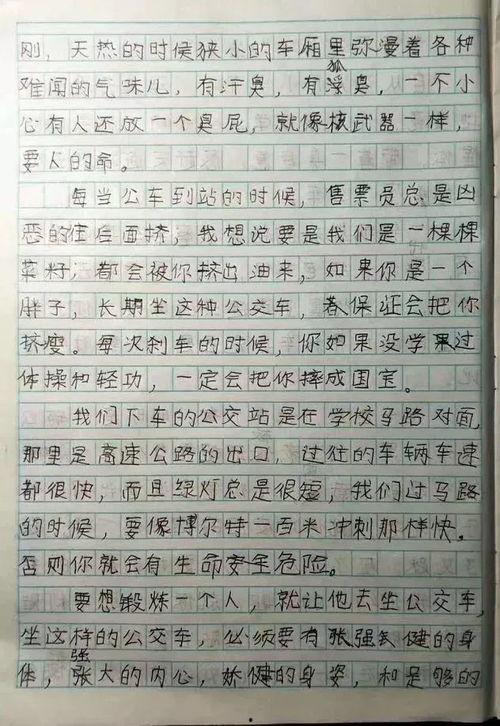 刚，天热的时候狭小的车厢里弥漫着各种
难闻的气味儿，有汗臭，有狐臭，一不小
心有人还放一个臭屁，就像核武器一样，
要人的命。
每当公车到站的时候，售票员总是凶
恶的往后面挤，我想说要是我们是一棵棵
菜籽，都会被你挤出油来，如果你是一个
胖子，长期坐这种公交车，春保证会把你
挤瘦。每次刹车的时候，你如果没学过
体操和轻功，一定会把你摔成国宝。
我们下车的公交站是在学校马路对面，
那里是高速公路的出口，过往的车辆车速
都很快，而且绿灯总是很短，我们过马路
的时候，要像博尔特一百米冲刺那样快。
否则你就会有生命安全危险。
要想锻炼一个人，就让他去坐公交车，
坐这样的公交车，必须要有强健的身
体，强大的内心，娇健的身姿，和足够的